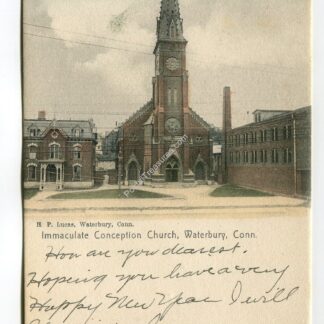 H. P. Lucas, Waterbury, Conn.
Immaculate Conception Church, Waterbury, Conn.
How are you dearest.
Hoping you have a very
Happy New Year I will